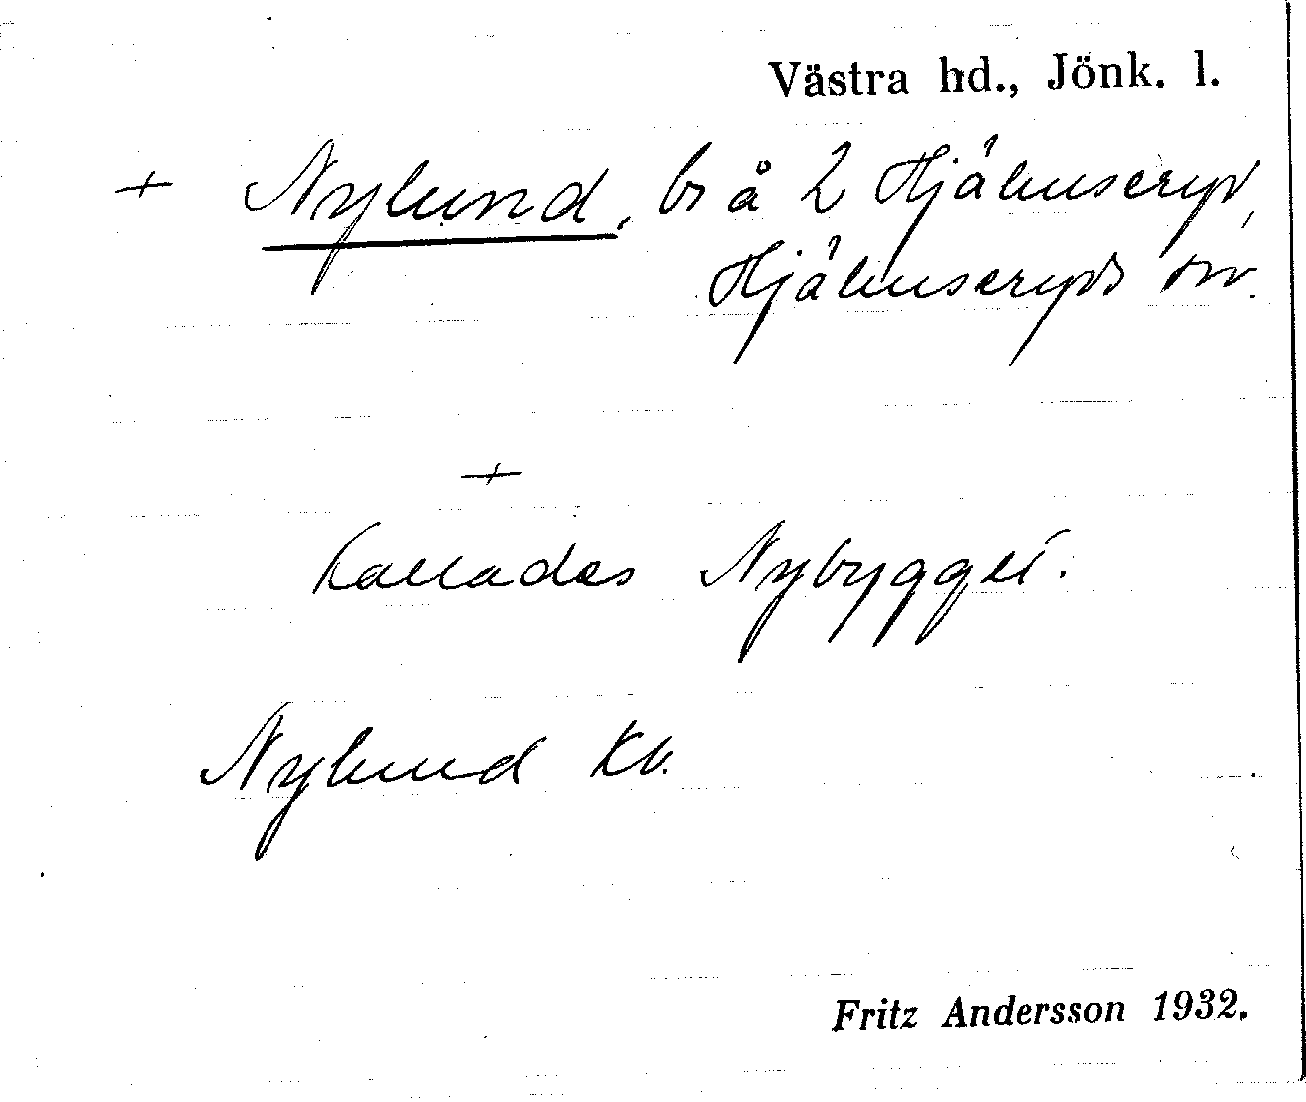 Västra hd., Jönk. l.
+ Nylund, br å 2 Hjälmseryd,
Hjälmseryds sn.
+
Kallades Nybygget.
Nylund Kb.
Fritz Andersson 1932.